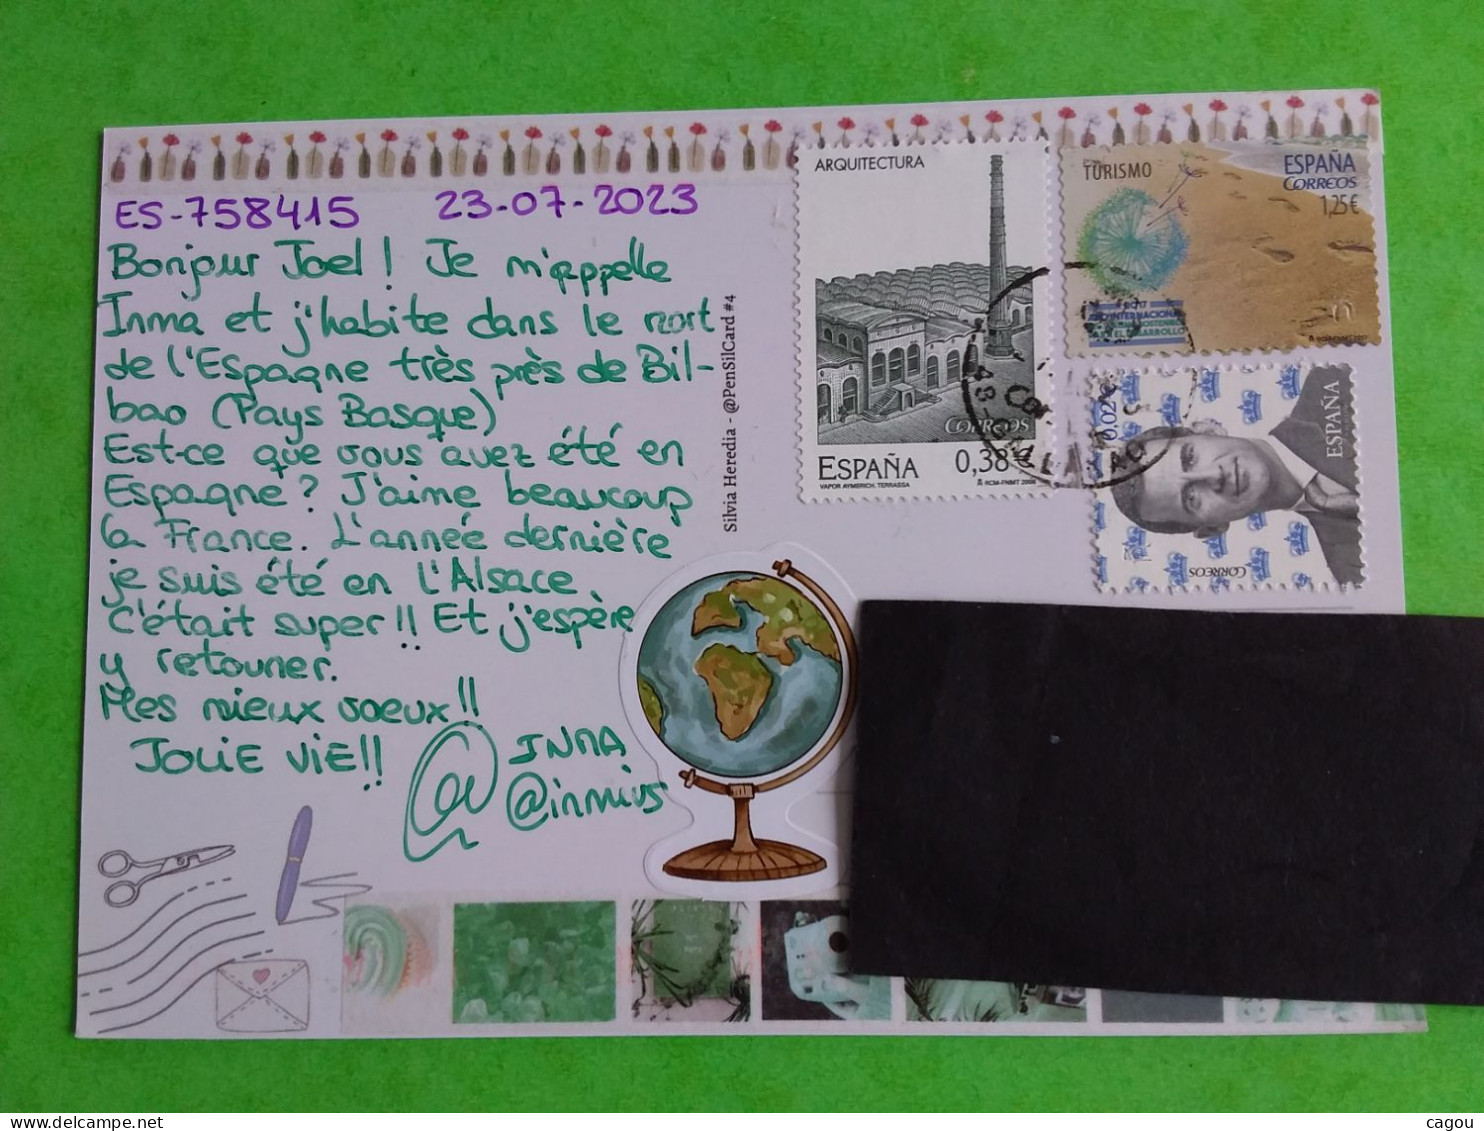 ES-758415 23-07-2023
Bonjour Joel! Je m'appelle
Inma et j'habite dans le nort
de l'Espagne très près de Bil-
bao (Pays Basque)
Est-ce que vous avez été en
Espagne? J'aime beaucoup
la France. L'année dernière
je suis été en l'Alsace.
C'était super!! Et j'espère
y retouner.
Mes mieux voeux!!
JOLIE VIE!!
INMA
@inmivs
Silvia Heredia - @PenSilCard #4
ARQUITECTURA
CORREOS
ESPAÑA 0,38€
VAPOR AYMERICH. TERRASSA
RCM-FNMT 2008
TURISMO
ESPAÑA
CORREOS
1,25€
0,02€
ESPAÑA
CORREOS
delcampe.net
cagou